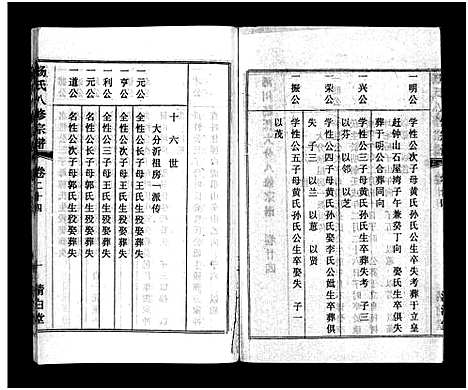 一明公
学性公次子母黄氏孙氏公生卒失考葬于立皇
赶钟山石屋湾子午兼癸丁向 娶氏生卒俱失
葬于明公合葬同向
一兴公
学性公三子母黄氏孙氏公生卒失考 子三
以芬 以邻 以芝
荣公
学性公四子母黄氏孙氏娶李氏公生卒葬俱
失 子三 以兰 以蕙 以贤
一振公
学性公五子母黄氏孙氏公生卒葬娶失 子一
以茂
十六世
大分沂祖房一派传
一元公
全性公长子母王氏生殁娶葬失
一亨公
全性公次子母王氏生殁娶葬失
一利公
全性公三子母王氏生殁娶葬失
一元公
名性公长子母郭氏生殁娶葬失
一道公
名性公次子母郭氏生殁娶葬失
杨氏八修宗谱 卷二十四
一 清白堂